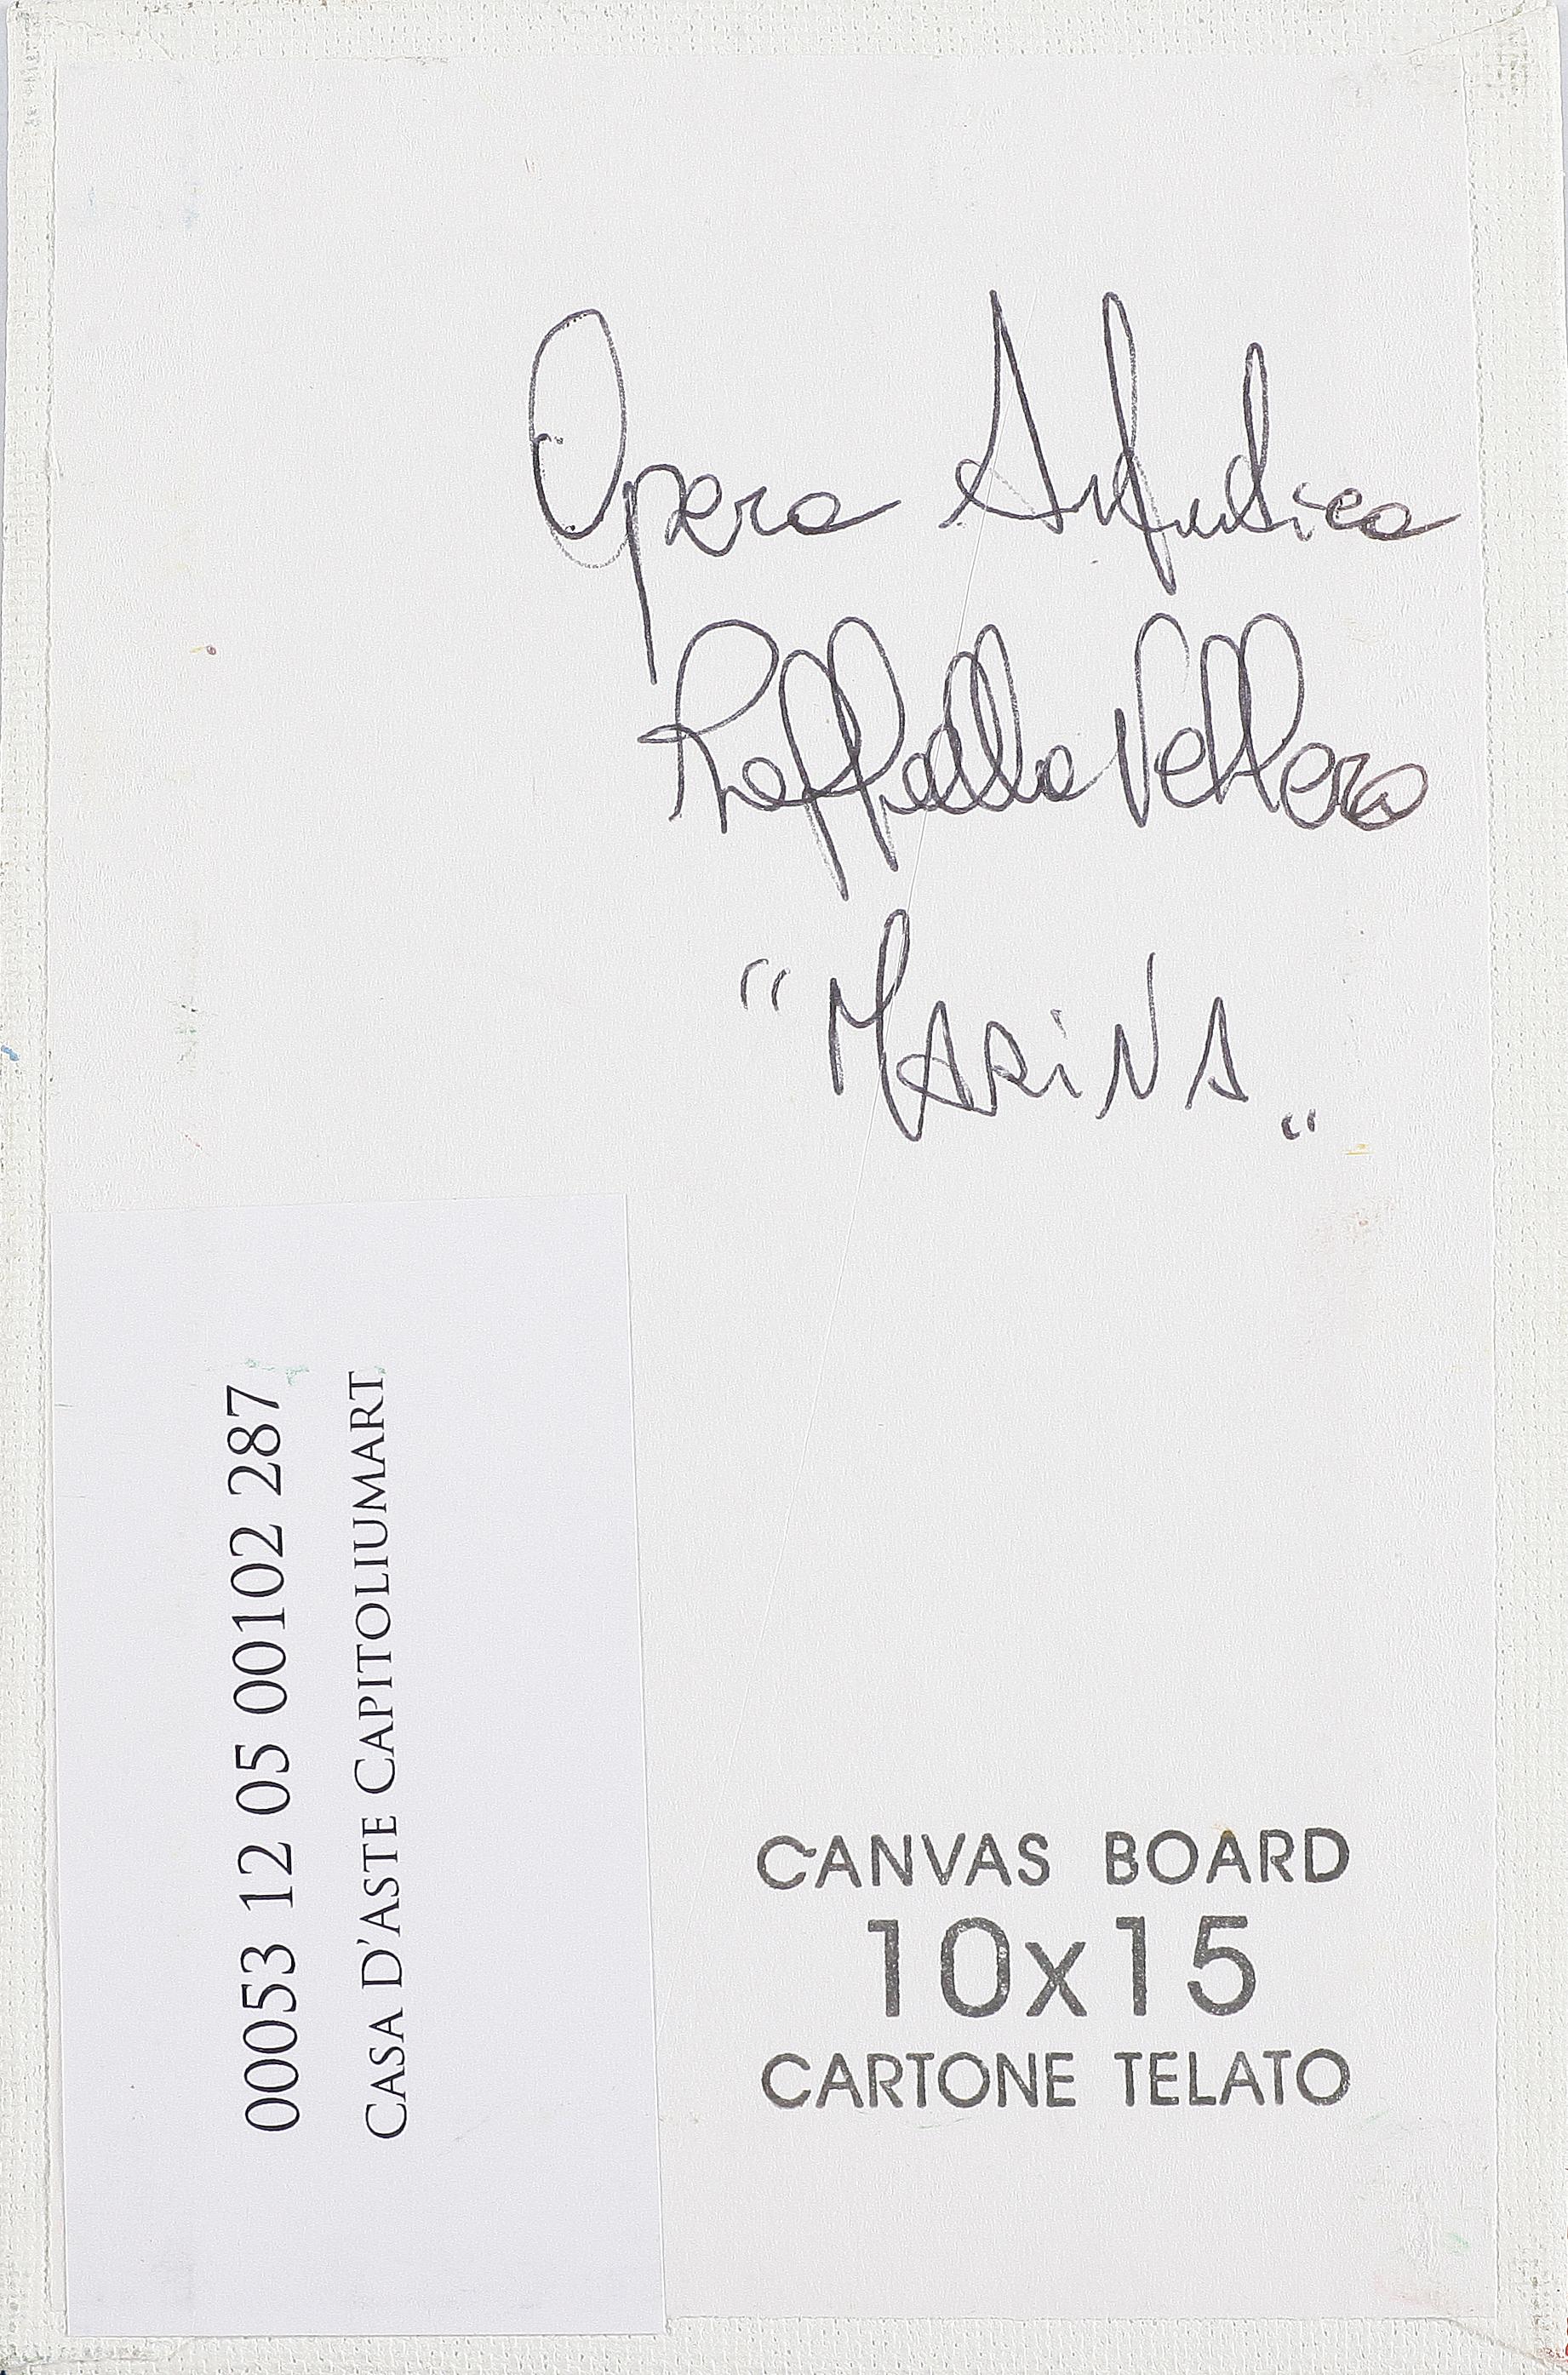 Opera Autentica
Raffaella Vettero
"MARINA„
00053 12 05 00102 287
CASA D'ASTE CAPITOLIUMART
CANVAS BOARD
10x15
CARTONE TELATO